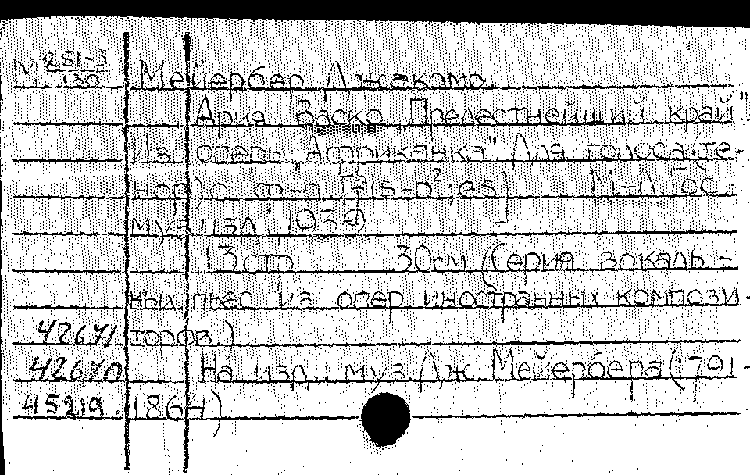 М 281-3 Мейербер Джакомо
130
Ария Васко "Прелестнейший край"
Из оперы "Африканка" Для голоса (те-
нор) с ф-п М-Л Гос.
муз изд 1939
13 стр 30 см (Серия вокаль-
ных пьес из опер иностранных компози-
42671 торов.)
42670 На изд. муз Дж Мейербера (1791-
45219 1864)